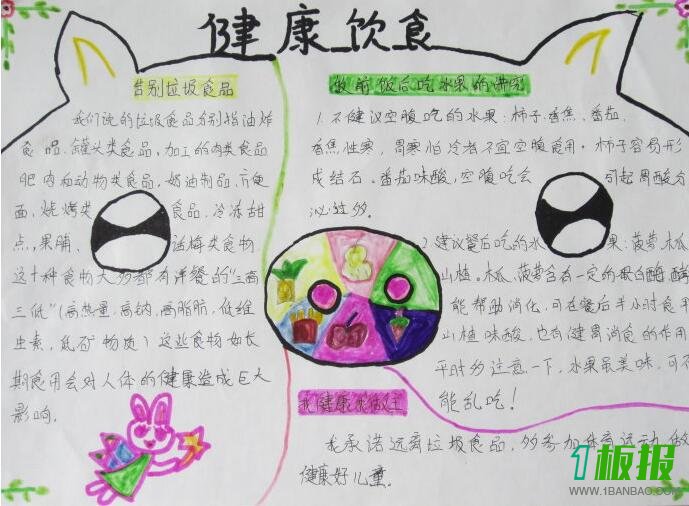 健康饮食
告别垃圾食品
我们说的垃圾食品分别指油炸
食品、罐头类食品、加工的肉类食品
肥肉和动物类食品、奶油制品、方便
面、烧烤类食品、冷冻甜
点、果脯、话梅类食物
这十种食物大多都有洋餐的“三高
三低”(高热量、高钠、高脂肪、低维
生素、低矿物质)这些食物如长
期食用会对人体的健康造成巨大
影响.
饭前饭后吃水果的讲究
1.不建议空腹吃的水果:柿子.香蕉、番茄.
香蕉性寒,胃寒怕冷者不宜空腹食用。柿子容易形
成结石。番茄味酸,空腹吃会引起胃酸分
泌过多。
2.建议餐后吃的水果:菠萝木瓜
山楂。木瓜、菠萝含有一定的蛋白酶.酶
能帮助消化,可在餐后半小时食
山楂味酸,也有健胃消食的作用
平时多注意一下,水果虽美味,可不
能乱吃!
我健康我做主
我承诺远离垃圾食品,多参加体育运动,做
健康好儿童.
1板报
WWW.1BANBAO.COM